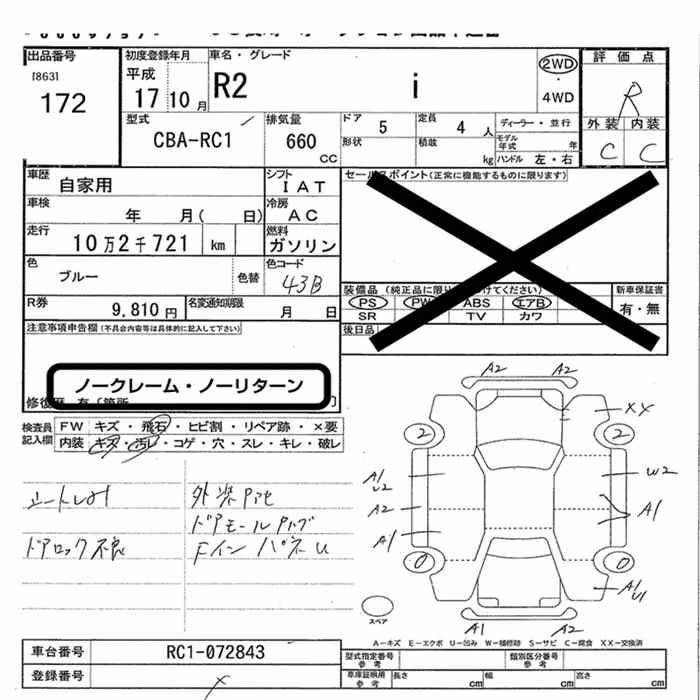 出品番号 初度登録年月 車名・グレード 評価点
[863] 平成 2WD
172 17 10月 R2 i 4WD R
型式 排気量 ドア 定員 ディーラー・並行 外装 内装
CBA-RC1 660 CC 5 4人 モデル年式 年 C C
形状 積載 kg ハンドル 左・右
車歴 自家用 シフト IAT セールスポイント(正常に機能するものに限ります)
車検 年 月( 日) 冷房 AC
走行 10万2千721 km 燃料 ガソリン
色 ブルー 色替 色コード 43B
装備品 新車保証書
PS PW ABS エアB 有・無
SR TV カワ
R券 9,810円 名変通知期限 月 日
後日品
注意事項申告欄(不具合内容等は具体的に記入して下さい)
ノークレーム・ノーリターン
検査員記入欄 FW キズ・飛石・ヒビ割・リペア跡・×要
内装 キズ・汚レ・コゲ・穴・スレ・キレ・破レ
外装
ドアモール
ドアロック不良 Fイン パネ U
A2 A2
XX
2 2
A1 U2 W2
A2 A1
A1
0 0
A1 U1
スペア
A1 A2
A-キズ E-エクボ U-凹み W-補修跡 S-サビ C-腐食 XX-交換済
車台番号 RC1-072843 型式指定番号 参考 類別区分番号 参考
登録番号 車庫証明用 参考 長さ cm 幅 cm 高さ cm